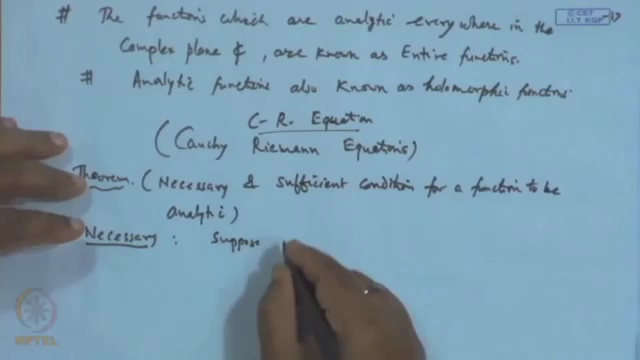 © CET
I.I.T. KGP
# The functions which are analytic everywhere in the
Complex plane ₵, are known as Entire functions.
# Analytic functions also known as holomorphic functions.
C-R- Equation
(Cauchy Riemann Equations)
Theorem. (Necessary & sufficient condition for a function to be
analytic)
Necessary : Suppose
NPTEL